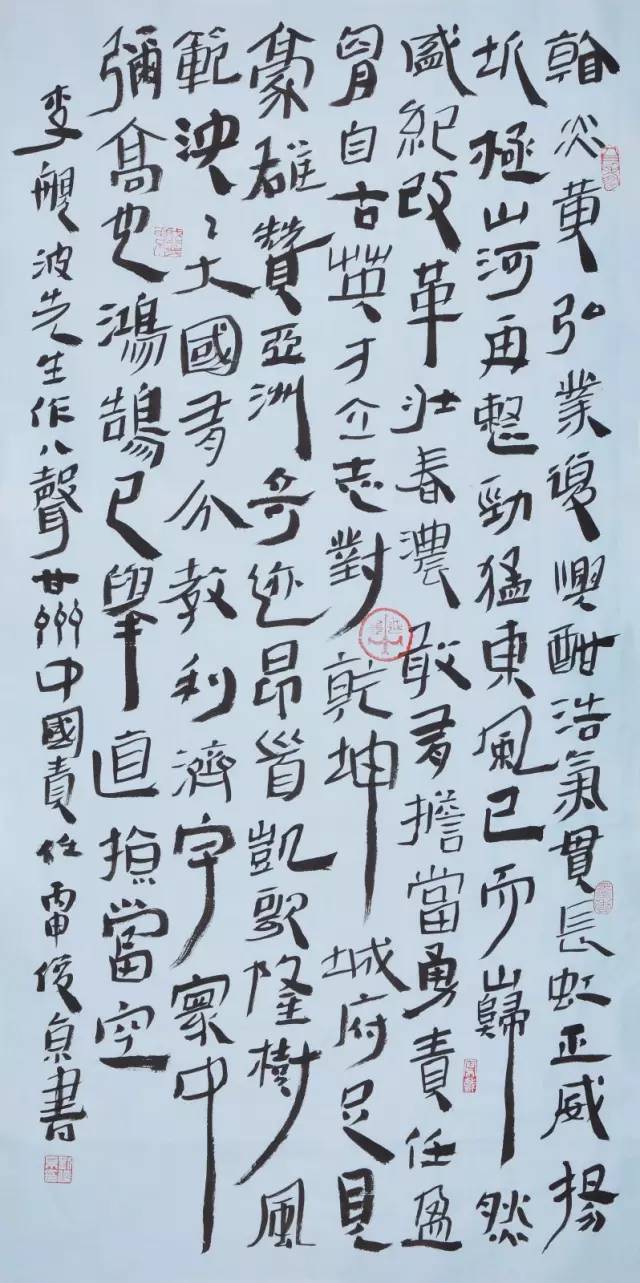 翰炎黄弘業復興酣浩氣貫長虹正威揚
極山河再整勁猛東風已而巋然
盛紀改革壯春濃敢有擔當勇責任盈
胷自古英才立志對乾坤城府足見
豪雄贊亞洲奇迹昂首凱歌隆樹風
範泱〻大國有分教利濟宇寰中
彌高也鴻鵠已舉直掠當空
李舰波先生作八聲甘州中國責任丙申俊貞書